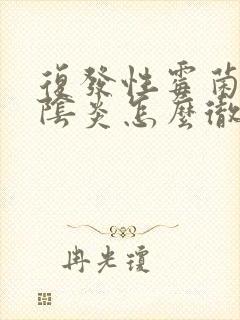 復發性霉菌
陰炎怎麼徹
冉光瓊